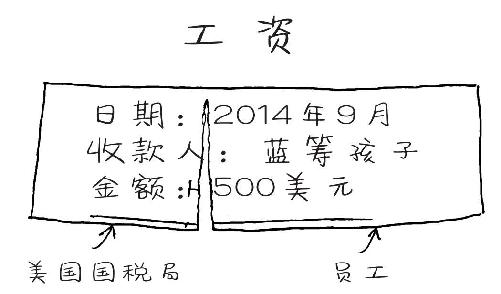 工资
日期：2014年9月
收款人：蓝等孩子
金额：500美元
美国国税局
员工